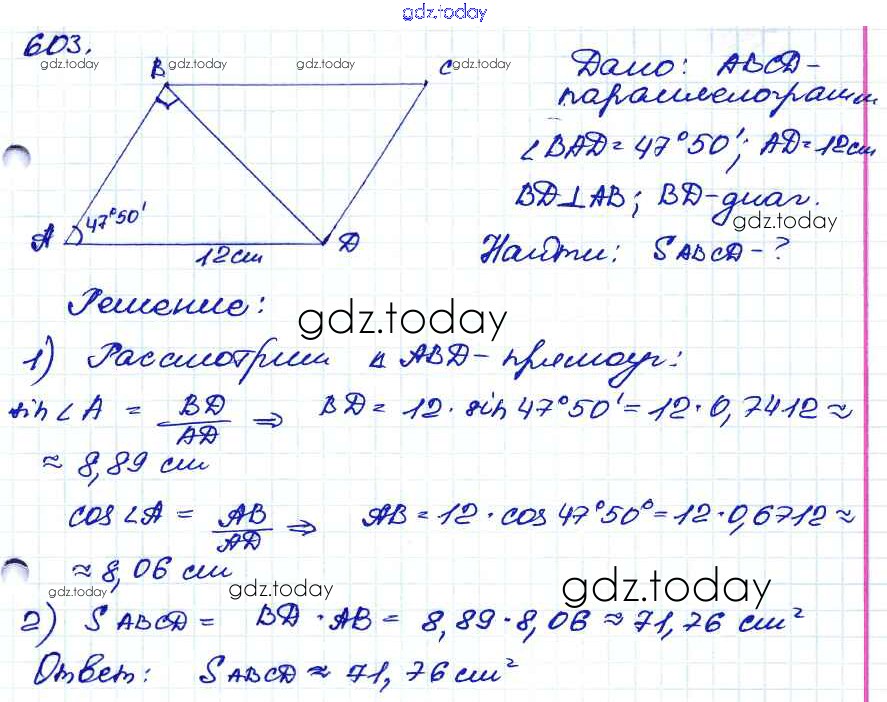 gdz.today
603.
gdz.today gdz.today gdz.today gdz.today
B
C
A
D
47°50'
12см
Дано: ABCD-
параллелограмм
∠BAD=47°50'; AD=12см
BD⊥AB; BD-диаг.
gdz.today
Найти: SABCD-?
Решение:
gdz.today
1) Рассмотрим △ABD-прямоуг:
sin∠A = BD/AD ⇒ BD=12·sin47°50'=12·0,7412≈
≈8,89 см
cos∠A = AB/AD ⇒ AB=12·cos47°50°=12·0,6712≈
≈8,06 см
gdz.today gdz.today gdz.today
2) SABCD = BD·AB= 8,89·8,06≈71,76 см²
Ответ: SABCD≈71,76см²